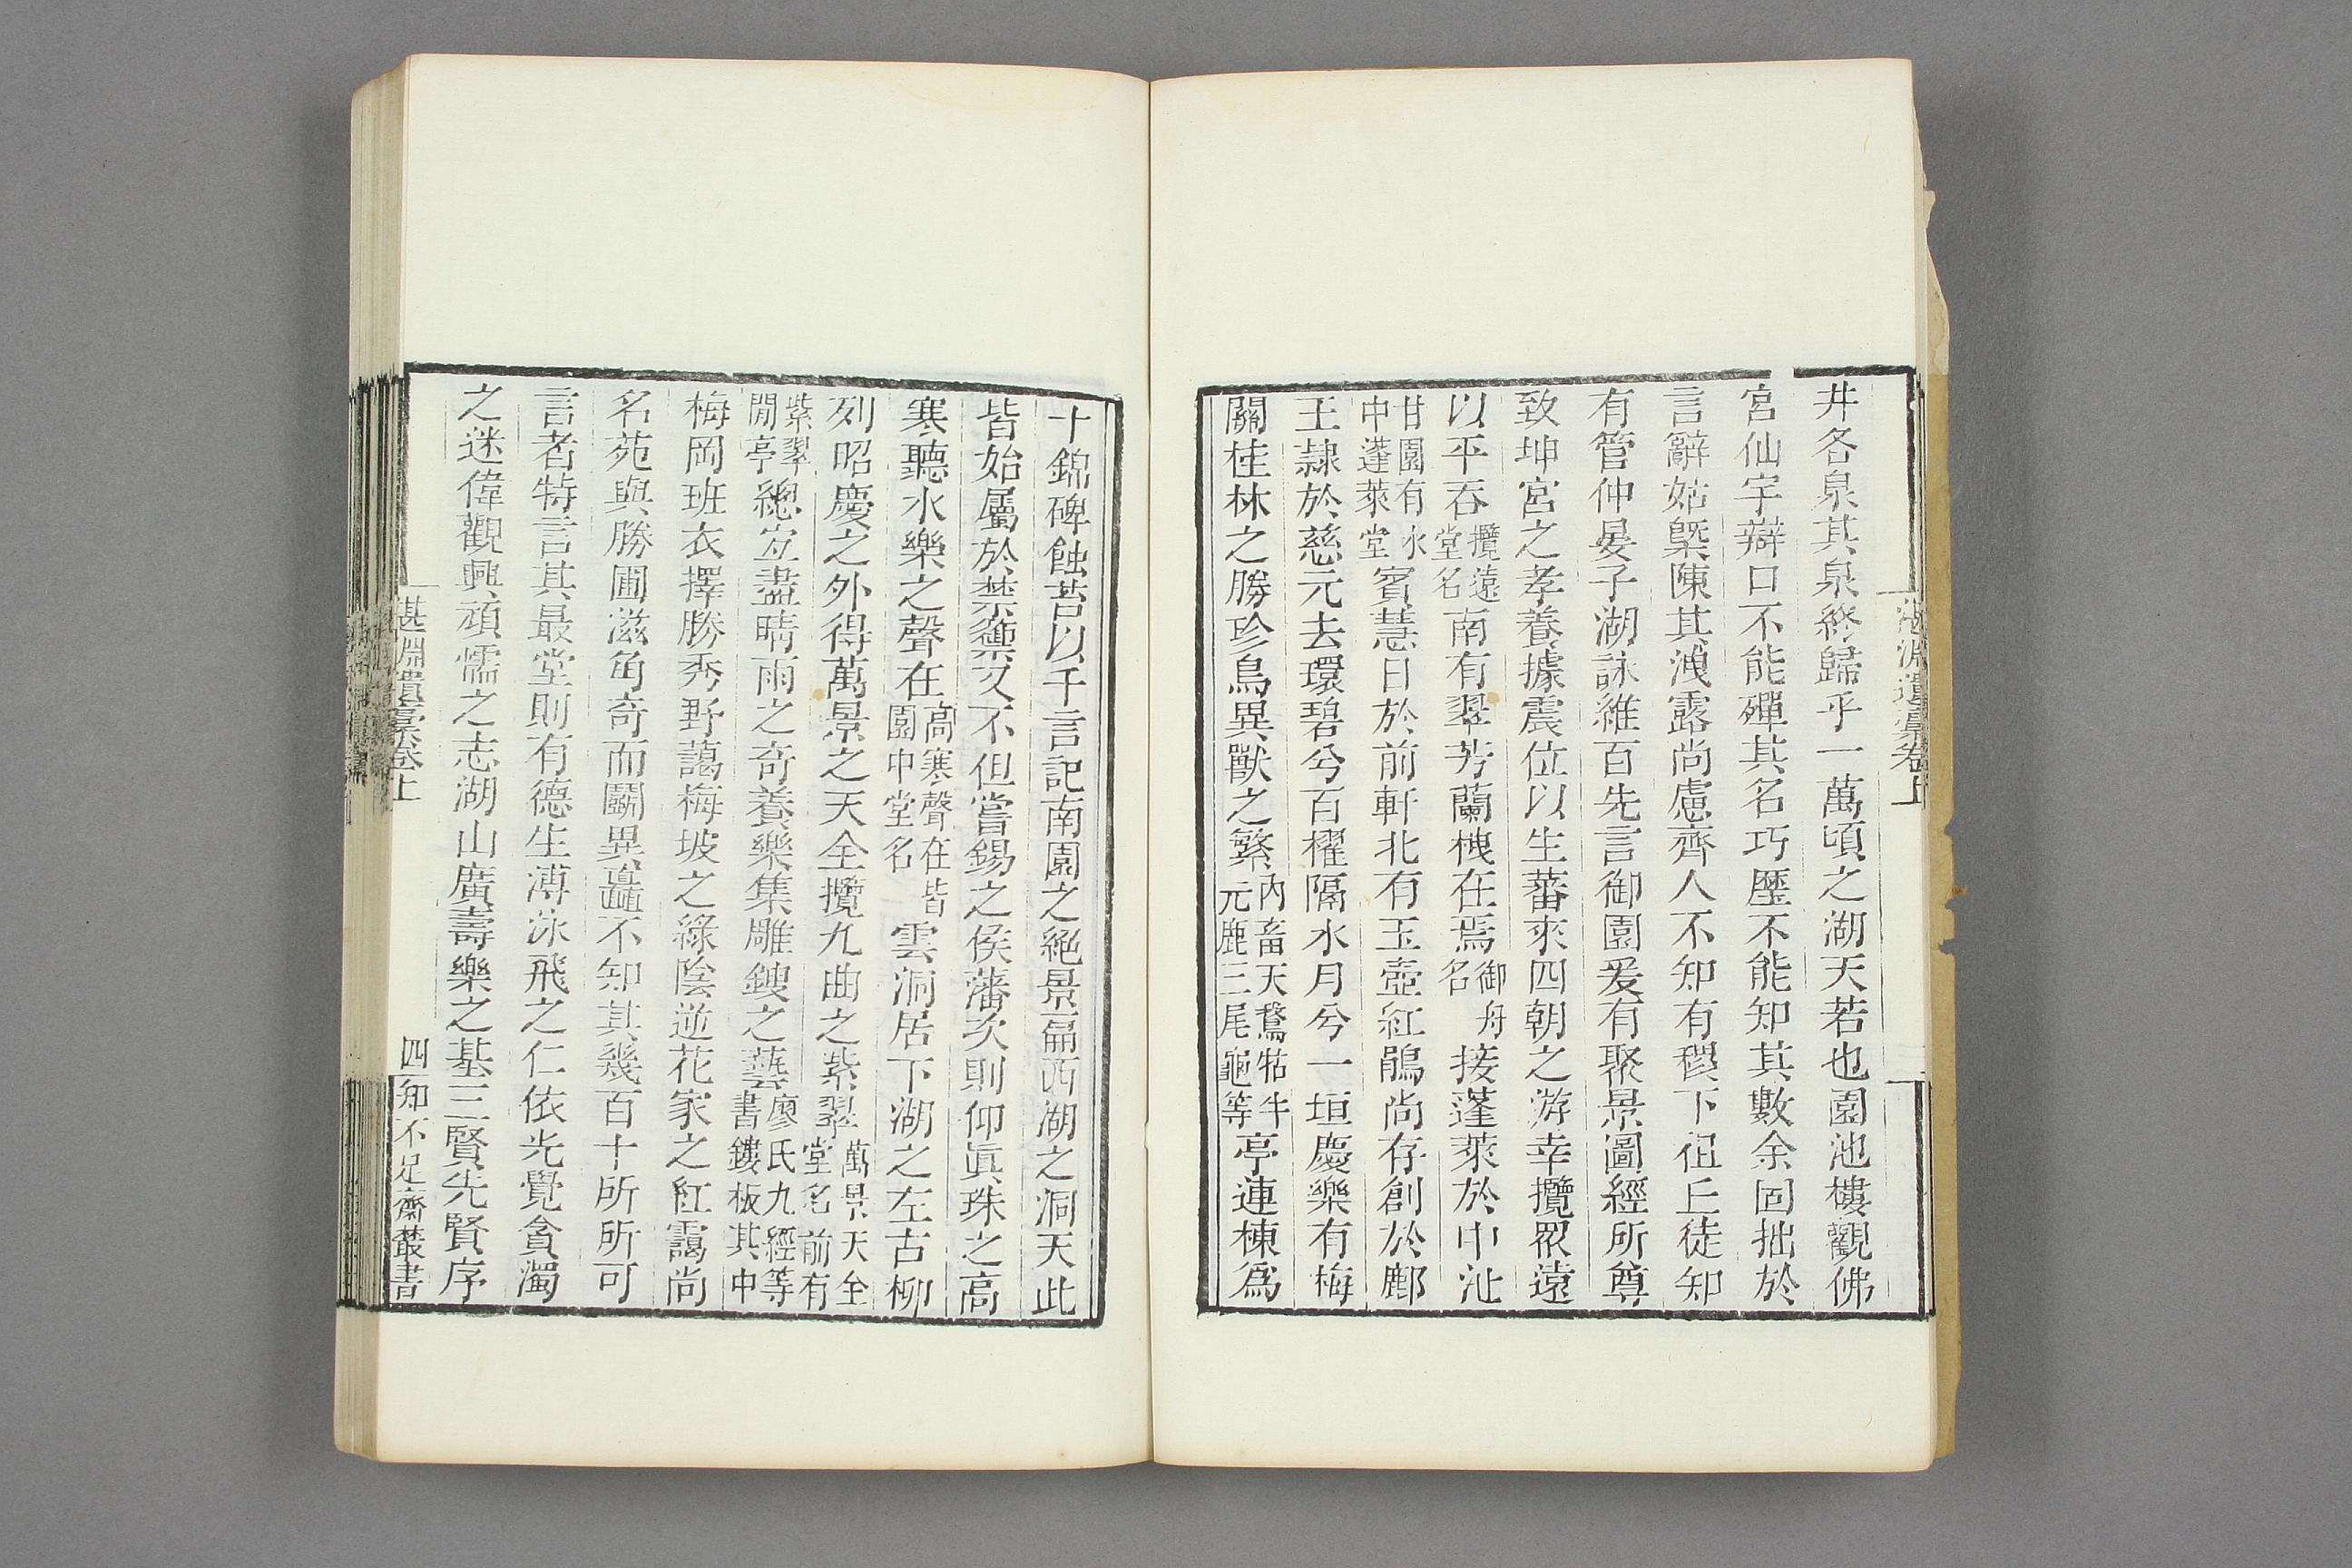 井各泉其泉終歸乎一萬頃之湖天若也園池樓觀佛
宮仙宇辯口不能殫其名巧歷不能知其數余固拙於
言辭姑槩陳其洩露尚慮齊人不知有稷下徂丘徒知
有管仲晏子湖詠維百先言御園爰有聚景圖經所尊
致坤宮之孝養據震位以生蕃來四朝之游幸攬眾遠
以平吞攬遠堂名南有翠芳蘭栧在焉御舟名接蓬萊於中沚
甘園有水中蓬萊堂賓慧日於前軒北有玉壺紅鵑尚存創於鄜
王隷於慈元去環碧兮百櫂隔水月兮一垣慶樂有梅
關桂林之勝珍鳥異獸之繁內畜天鵞牯牛元鹿三尾龜等亭連棟爲
十錦碑蝕苔以千言記南園之絕景扁西湖之洞天此
皆始屬於禁籞又不但嘗錫之侯藩次則仰眞珠之高
寒聽水樂之聲在高寒聲在皆園中堂名雲洞居下湖之左古柳
列昭慶之外得萬景之天全攬九曲之紫翠萬景天全堂名前有
紫翠閒亭總宐盡晴雨之奇養樂集雕鎪之藝廖氏九經等書鏤板其中
梅岡班衣擇勝秀野藹梅坡之綠陰逆花家之紅靄尚
名苑與勝圃滋角奇而鬭異矗不知其幾百十所所可
言者特言其最堂則有德生溥泳飛之仁依光覺貪濁
之迷偉觀興頑懦之志湖山廣壽樂之基三賢先賢序
湛淵遺稾卷上
四
知不足齋叢書